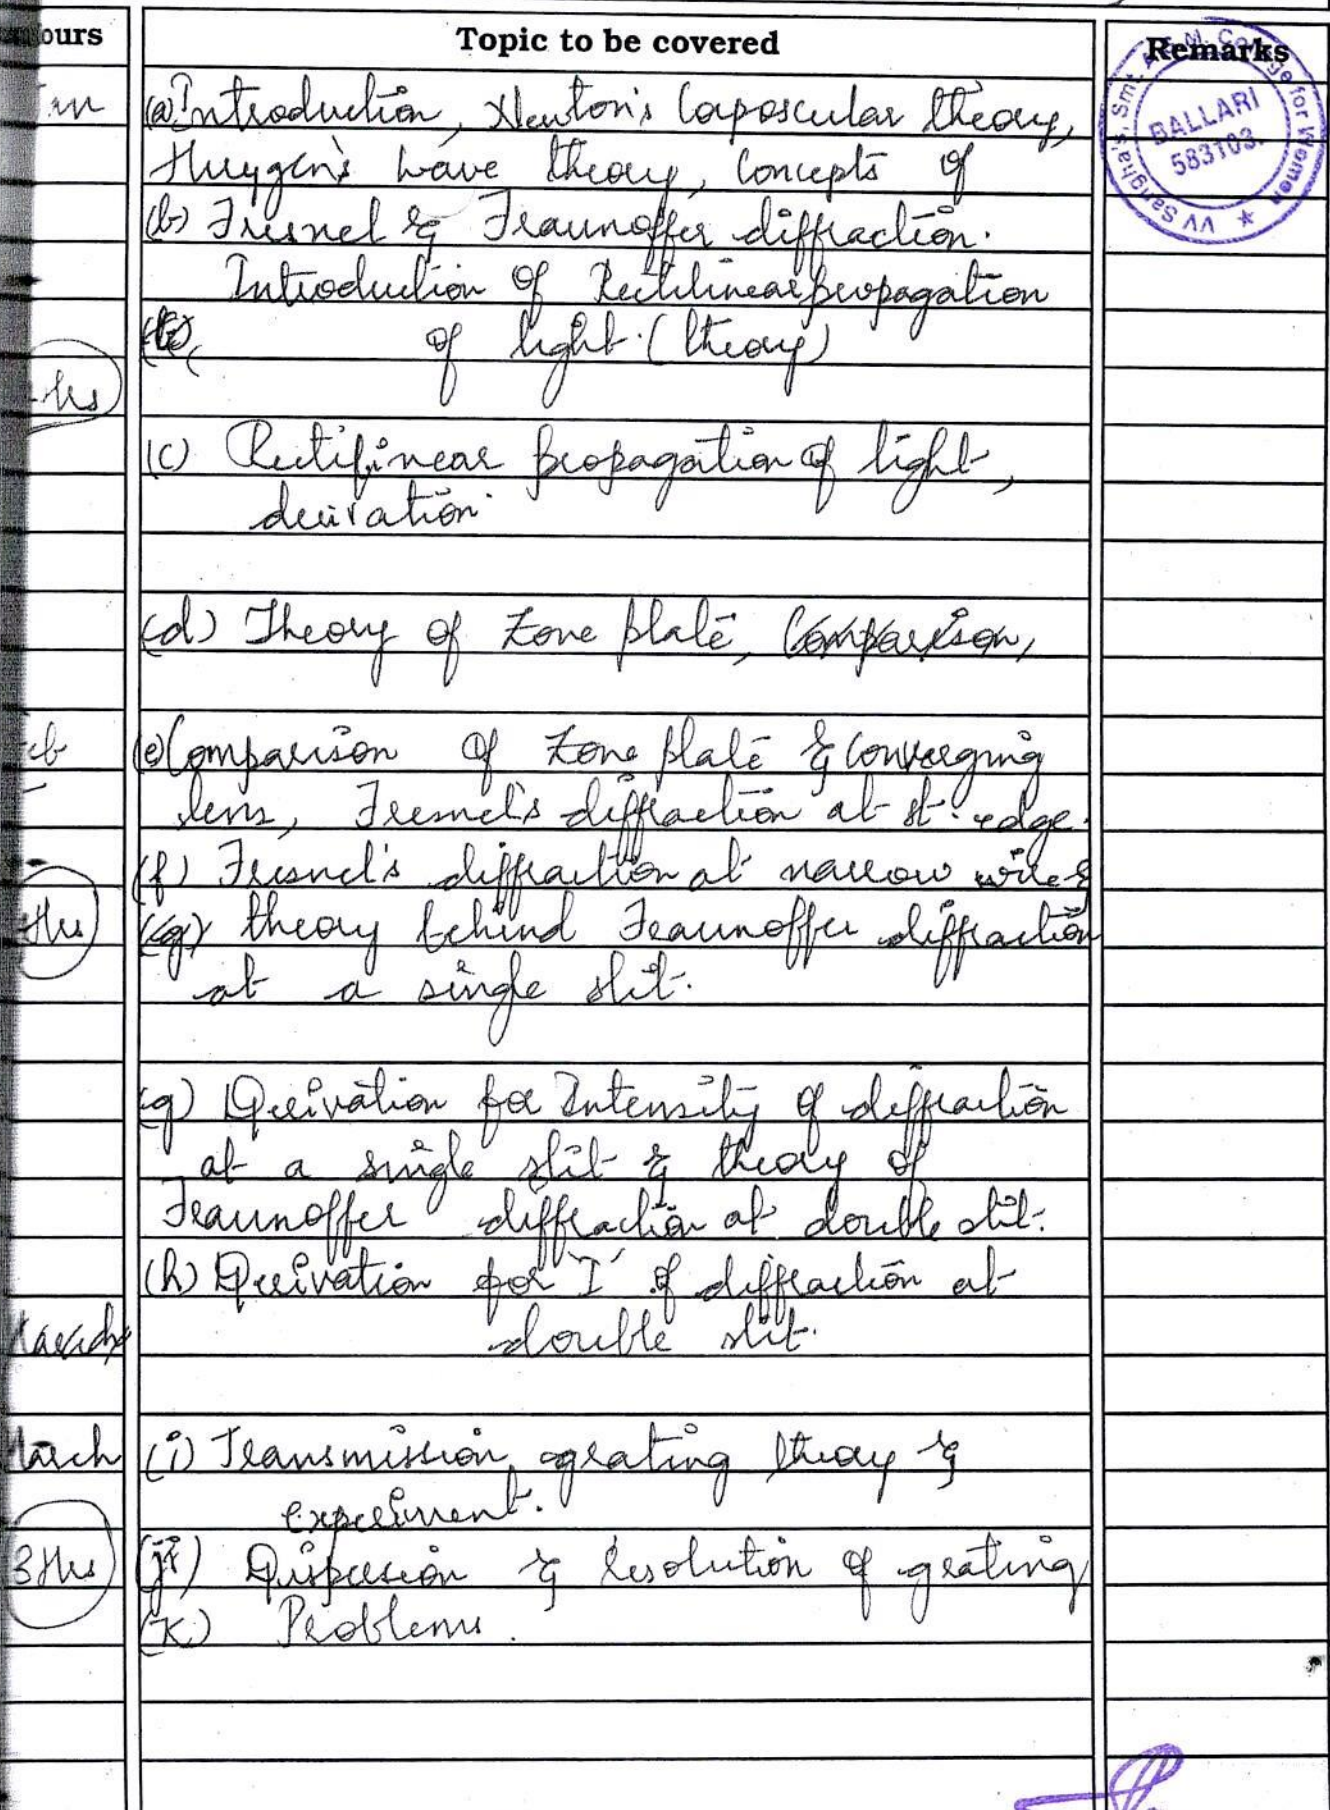 ours Topic to be covered Remarks
(a) Introduction, Newton's Corposcular theory,
Huygen's wave theory, Concepts of
(b) Fresnel & Fraunoffer diffraction.
Introduction of Rectilinear propagation
of light. (theory)
(c) Rectilinear propagation of light,
derivation
(d) Theory of Zone plate, Comparison,
(e) Comparison of Zone plate & Converging
lens, Fresnel's diffraction at st. edge.
(f) Fresnel's diffraction at narrow wire &
(g) theory behind Fraunoffer diffraction
at a single slit.
(g) Derivation for Intensity of diffraction
at a single slit & theory of
Fraunoffer diffraction at double slit.
(h) Derivation for I of diffraction at
double slit.
March (i) Transmission grating theory &
experiment.
3 Hrs (j) Dispersion & Resolution of grating
(K) Problems.
VV Sangha's, Smt. A.S.M. College for Women
BALLARI
583103.